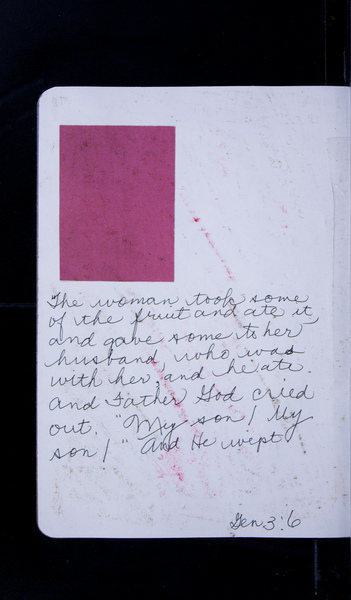 The woman took some
of the fruit and ate it,
and gave some to her
husband who was
with her, and he ate.
And Father God cried
out. "My son! My
son!" And He wept
Gen 3:6